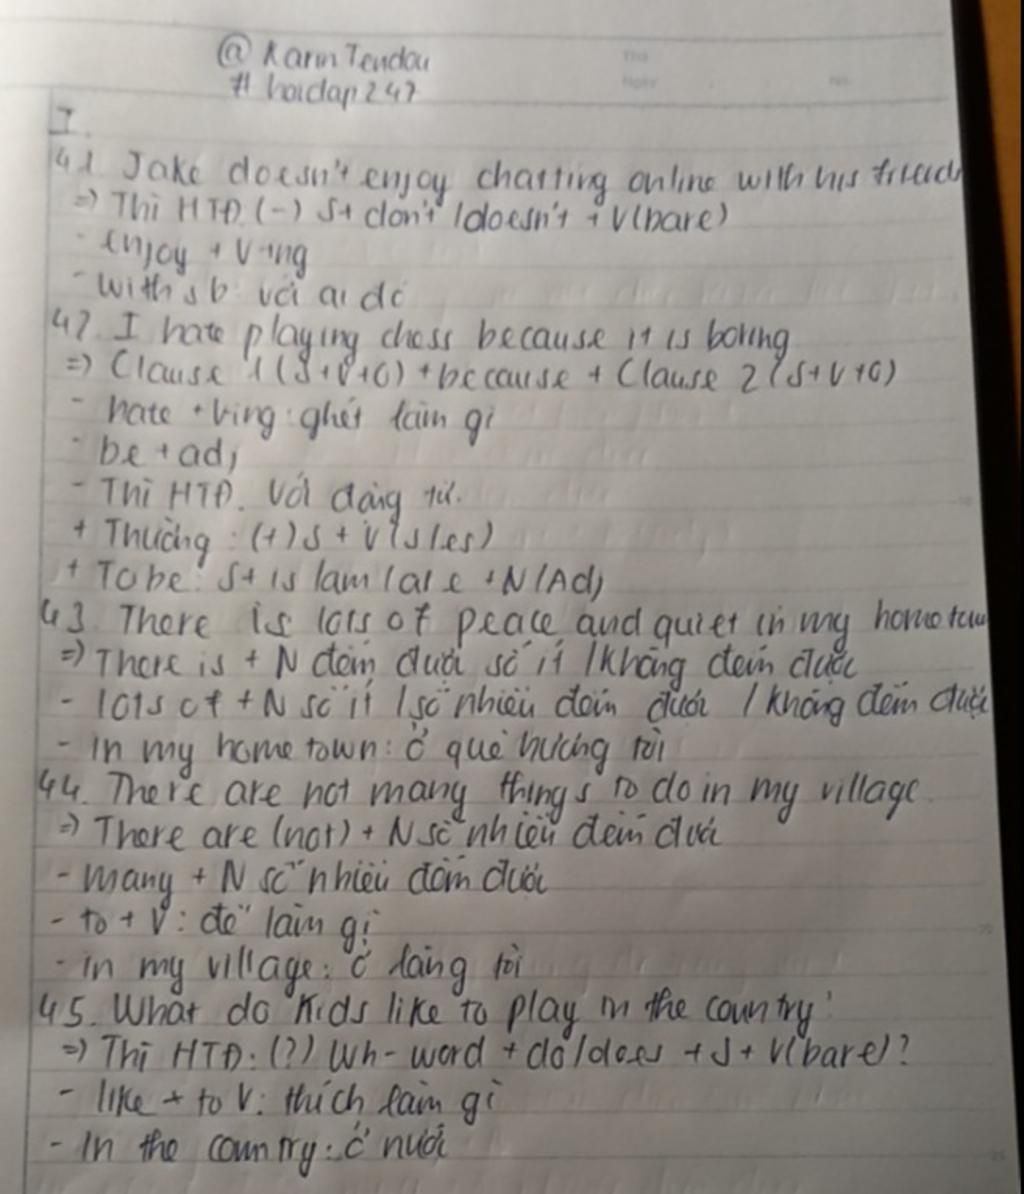 @ Karin Tendou
# hoidap247
I.
41. Jake doesn't enjoy chatting online with his friends
=> Thì HTĐ. (-) S+ don't /doesn't + V(bare)
- enjoy + V-ing
- with sb: với ai đó
42. I hate playing chess because it is boring
=> Clause 1 (S+V+O) + because + Clause 2 (S+V+O)
- hate + Ving: ghét làm gì
- be + adj
- Thì HTĐ. Với động từ.
+ Thường: (+) S + V (s/es)
+ Tobe: S+ is /am /are + N/Adj
43. There is lots of peace and quiet in my hometown
=> There is + N đếm được số ít /không đếm được
- lots of + N số ít /số nhiều đếm được / không đếm được
- in my hometown: ở quê hương tôi
44. There are not many things to do in my village.
=> There are (not) + N số nhiều đếm được
- many + N số nhiều đếm được
- to + V: để làm gì
- in my village: ở làng tôi
45. What do kids like to play in the country?
=> Thì HTĐ: (?) Wh- word + do/does + S + V(bare)?
- like + to V: thích làm gì
- In the country: ở nước